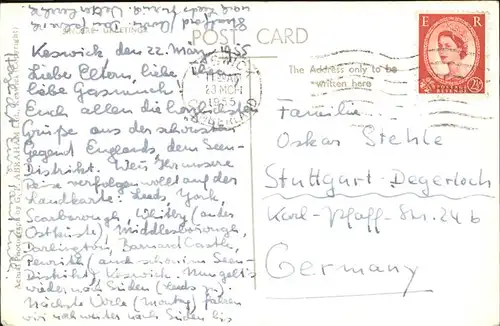 POST CARD
The Address only to be
written here
E R
POSTAGE REVENUE
2½D
KESWICK
23 MCH
1955
Keswick, den 22. März 1955
Liebe Eltern, liebe
liebe
Euch allen die herzlichsten
Grüße aus der schönsten
Gegend Englands dem Seen-
Distrikt. Wenn Ihr unsere
Reise verfolgen wollt auf der
Landkarte: Leeds, York,
Scarborough, Whitby (an der
Ostküste) Middlesborough,
Darlington, Barnard Castle,
Penrith (auch schon im Seen-
Distrikt), Keswick. Nun geht's
wieder nach Süden (Leeds zu).
Nächste Woche (Montag) fahren
wir noch weiter nach Süden bis
Familie
Oskar Stehle
Stuttgart-Degerloch
Karl-Pfaff-Str. 24 b
Germany